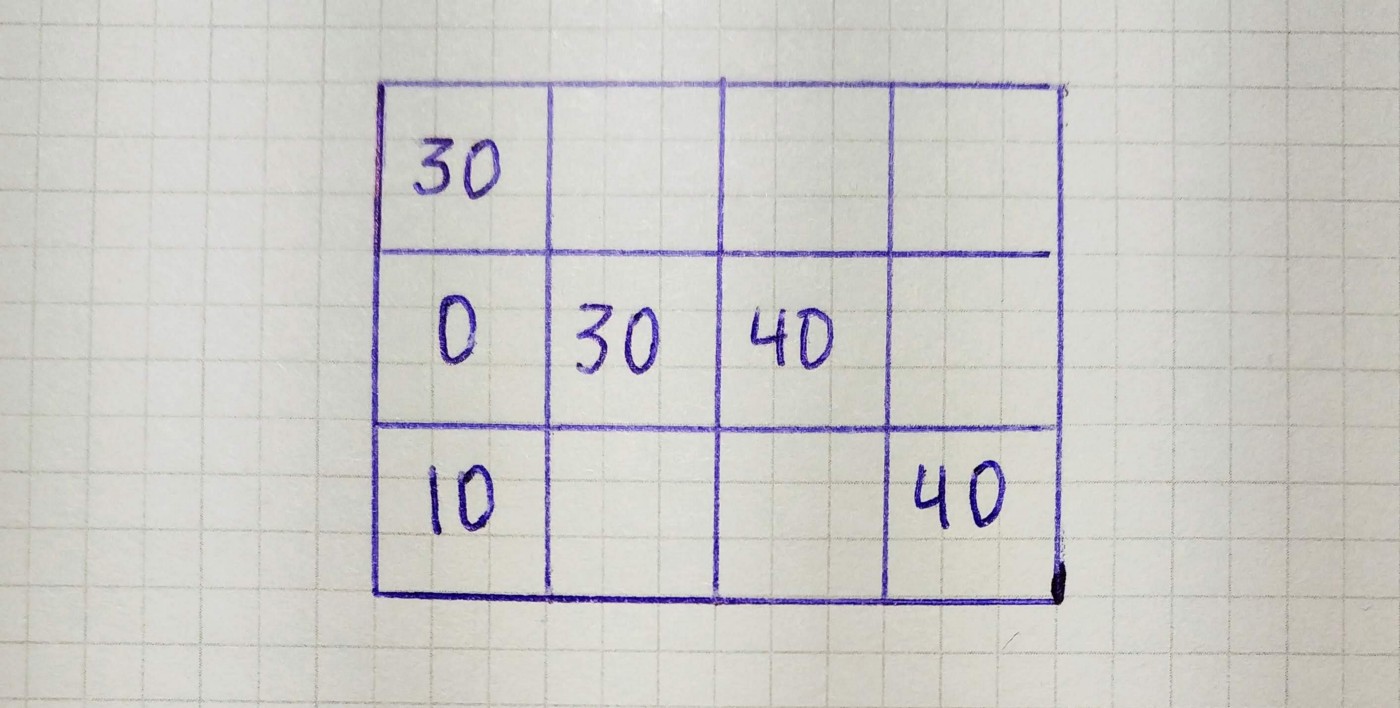 30
0 30 40
10 40